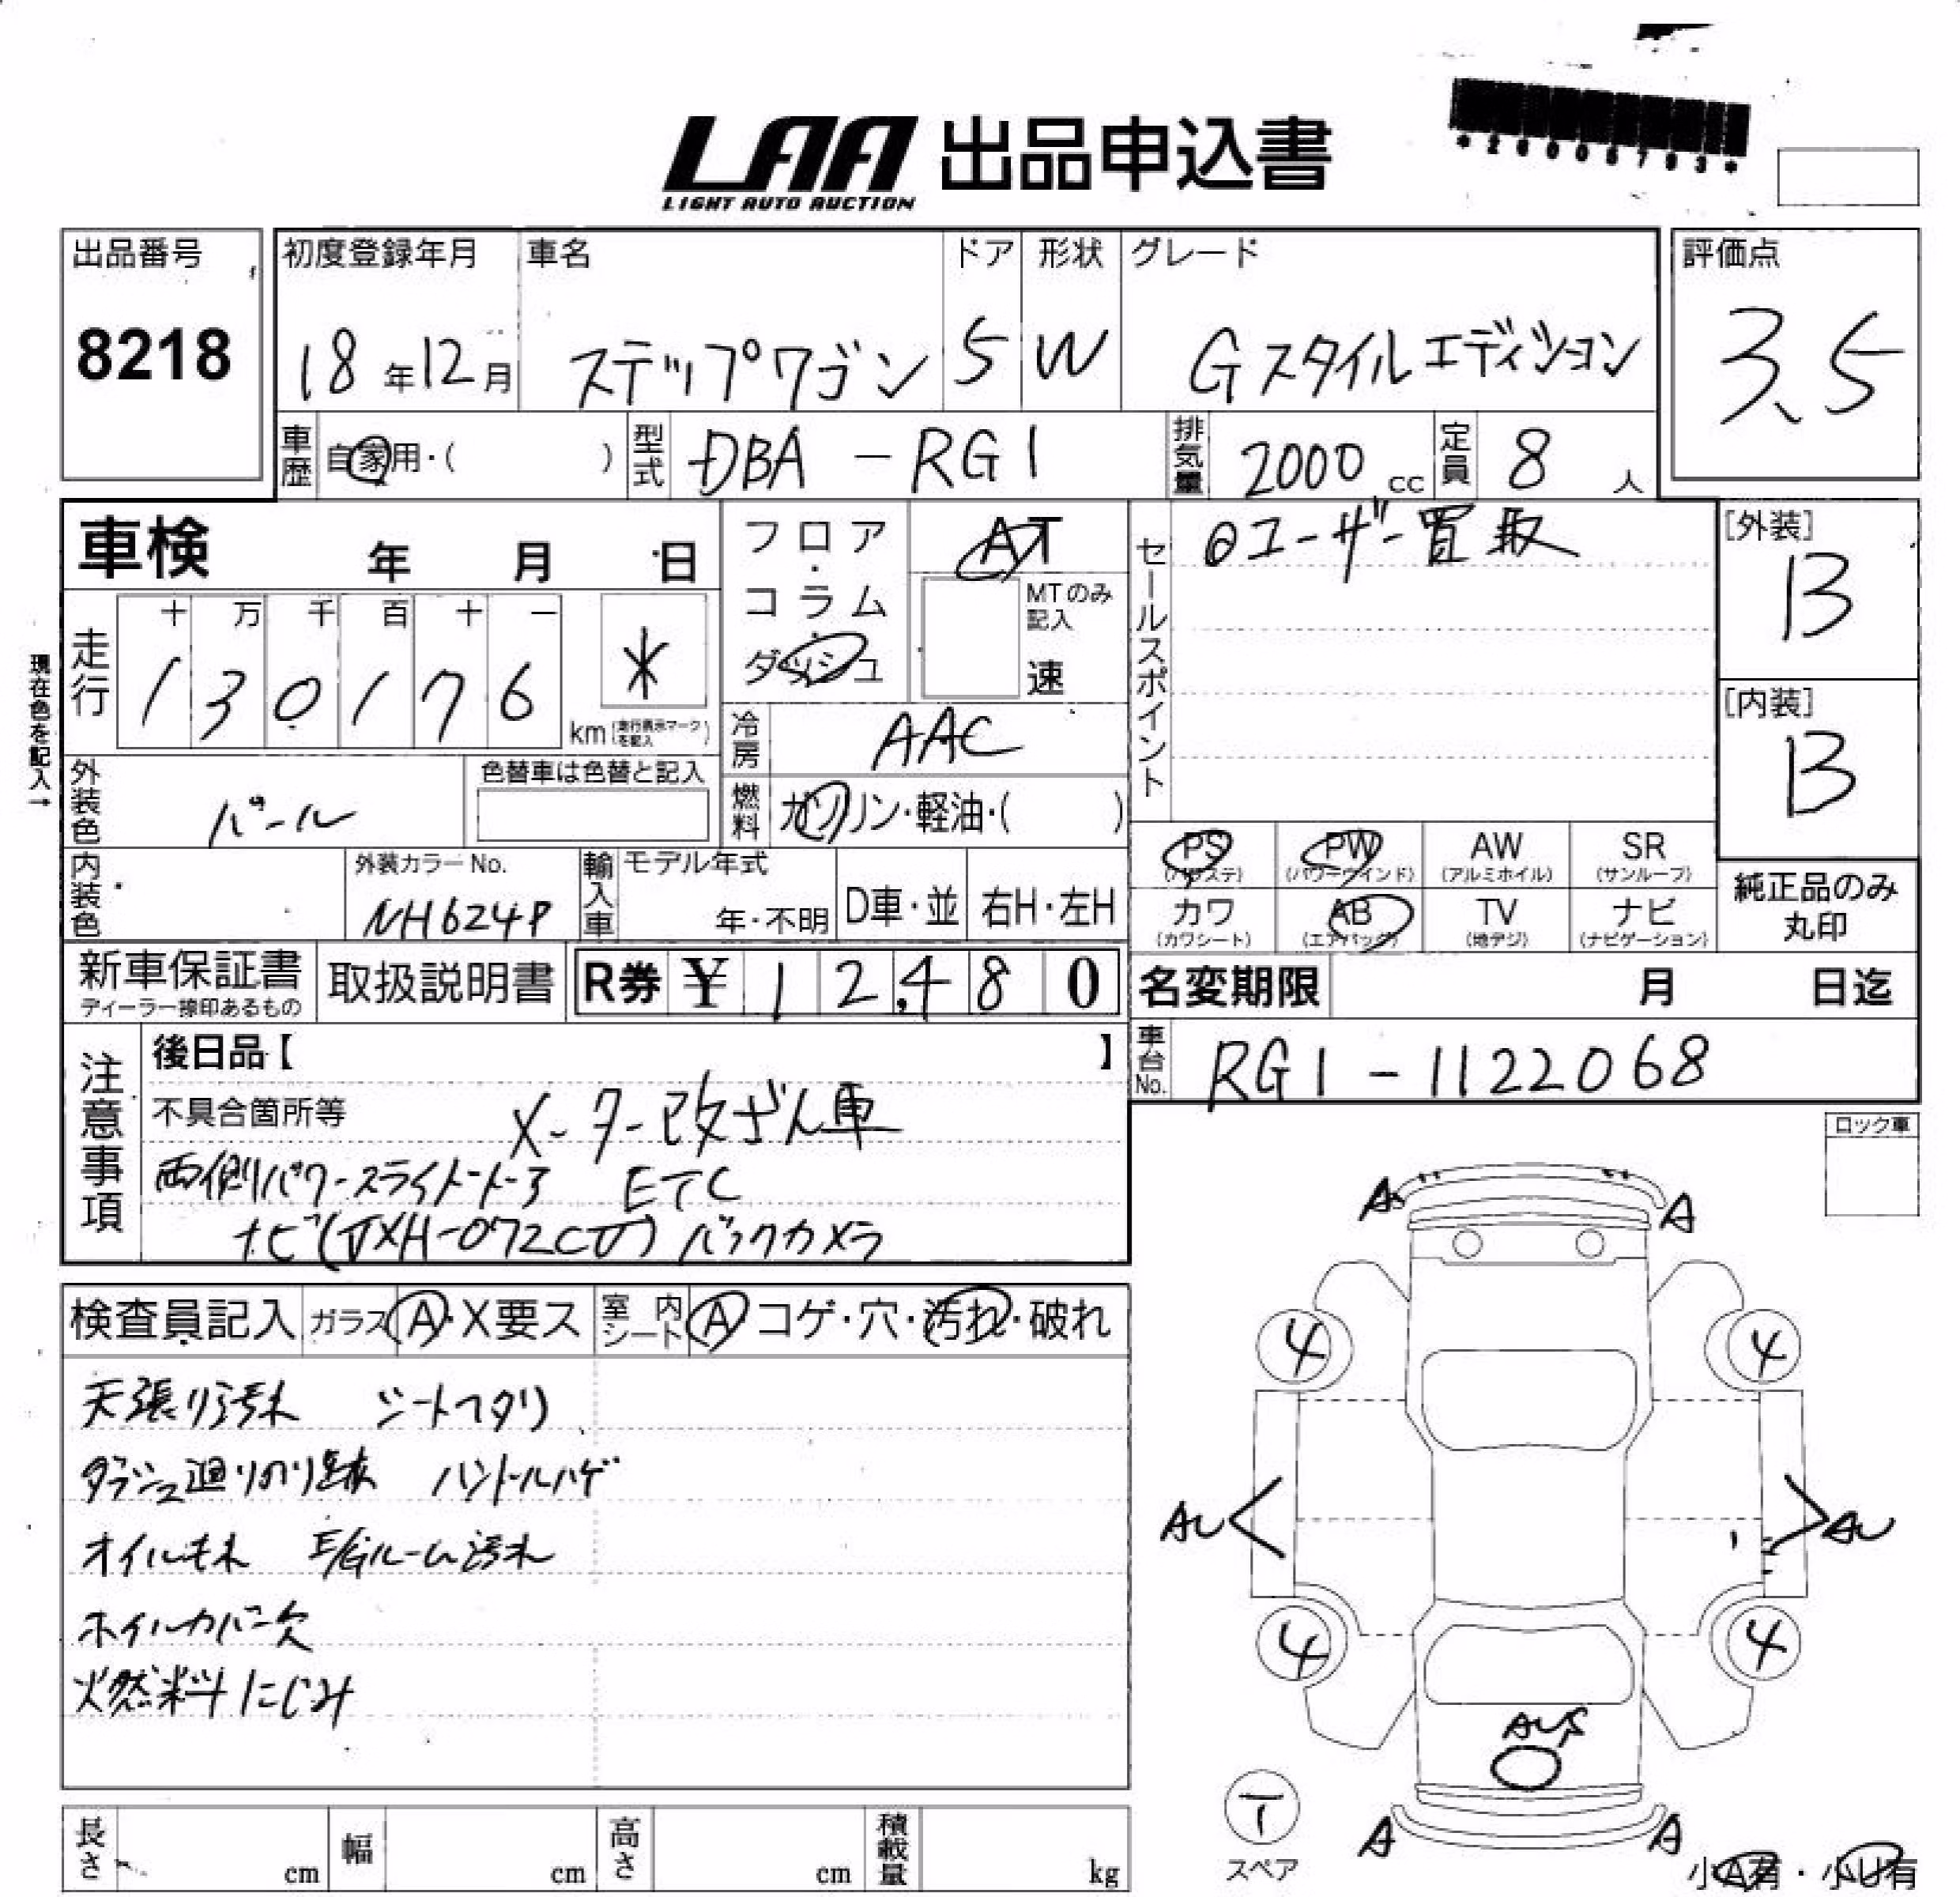 *26005793*
LAA 出品申込書
LIGHT AUTO AUCTION
出品番号 初度登録年月 車名 ドア 形状 グレード 評価点
8218 18年12月 ステップワゴン 5 W Gスタイルエディション 3.5
車歴 自家用・( ) 型式 DBA-RG1 排気量 2000cc 定員 8人
車検 年 月 日 フロア・コラム・ダッシュ AT セールスポイント ◎ユーザー買取 [外装]
B
MTのみ記入
速
十 万 千 百 十 一
走行 1 3 0 1 7 6 * km(走行表示マークを記入) [内装]
B
冷房 AAC
現在色を記入→
外装色 パール 色替車は色替と記入 燃料 ガソリン・軽油・( )
PS (パワステ) PW (パワーウインド) AW (アルミホイル) SR (サンルーフ)
内装色 外装カラーNo. NH624P 輸入車 モデル年式 年・不明 D車・並 右H・左H
カワ (カワシート) AB (エアバッグ) TV (地デジ) ナビ (ナビゲーション) 純正品のみ
丸印
新車保証書 ディーラー捺印あるもの 取扱説明書 R券 ¥12,480 名変期限 月 日迄
車台No. RG1-1122068
注意事項 後日品【 】
不具合箇所等 メーター改ざん車
両側パワースライドドア ETC
ナビ( XH-072CD) バックカメラ
ロック車
A A
検査員記入 ガラス A・X要ス 室内シート A コゲ・穴・汚れ・破れ
4 4
天張り汚れ シートヘタリ
ダッシュ廻りのり跡 ハンドルハゲ
AU AU
オイルもれ E/Gルーム汚れ
ホイルカバー欠
4 4
燃料にじみ
AUS
T
スペア
A A
長さ cm 幅 cm 高さ cm 積載量 kg
小A有・小U有